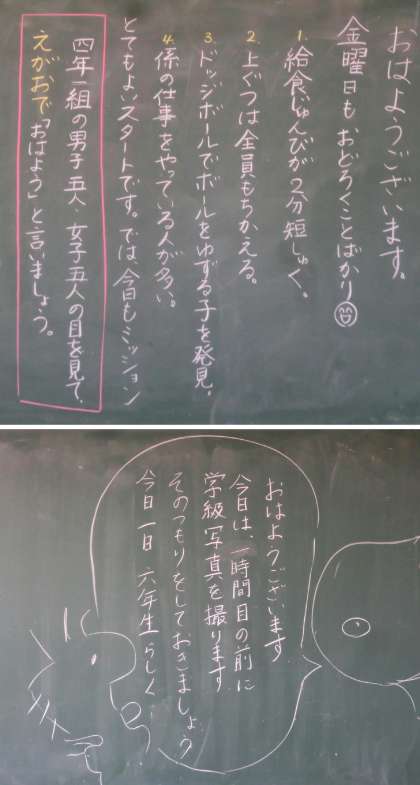 おはようございます。
金曜日もおどろくことばかり
1. 給食じゅんびが2分短しゅく。
2. 上ぐつは全員もちかえる。
3. ドッジボールでボールをゆずる子を発見。
4. 係の仕事をやっている人が多い。
とてもよいスタートです。では、今日もミッション
四年一組の男子五人、女子五人の目を見て、
えがおで「おはよう」と言いましょう。
おはようございます
今日は、一時間目の前に
学級写真を撮ります
そのつもりをしておきましょう
今日一日六年生らしく…